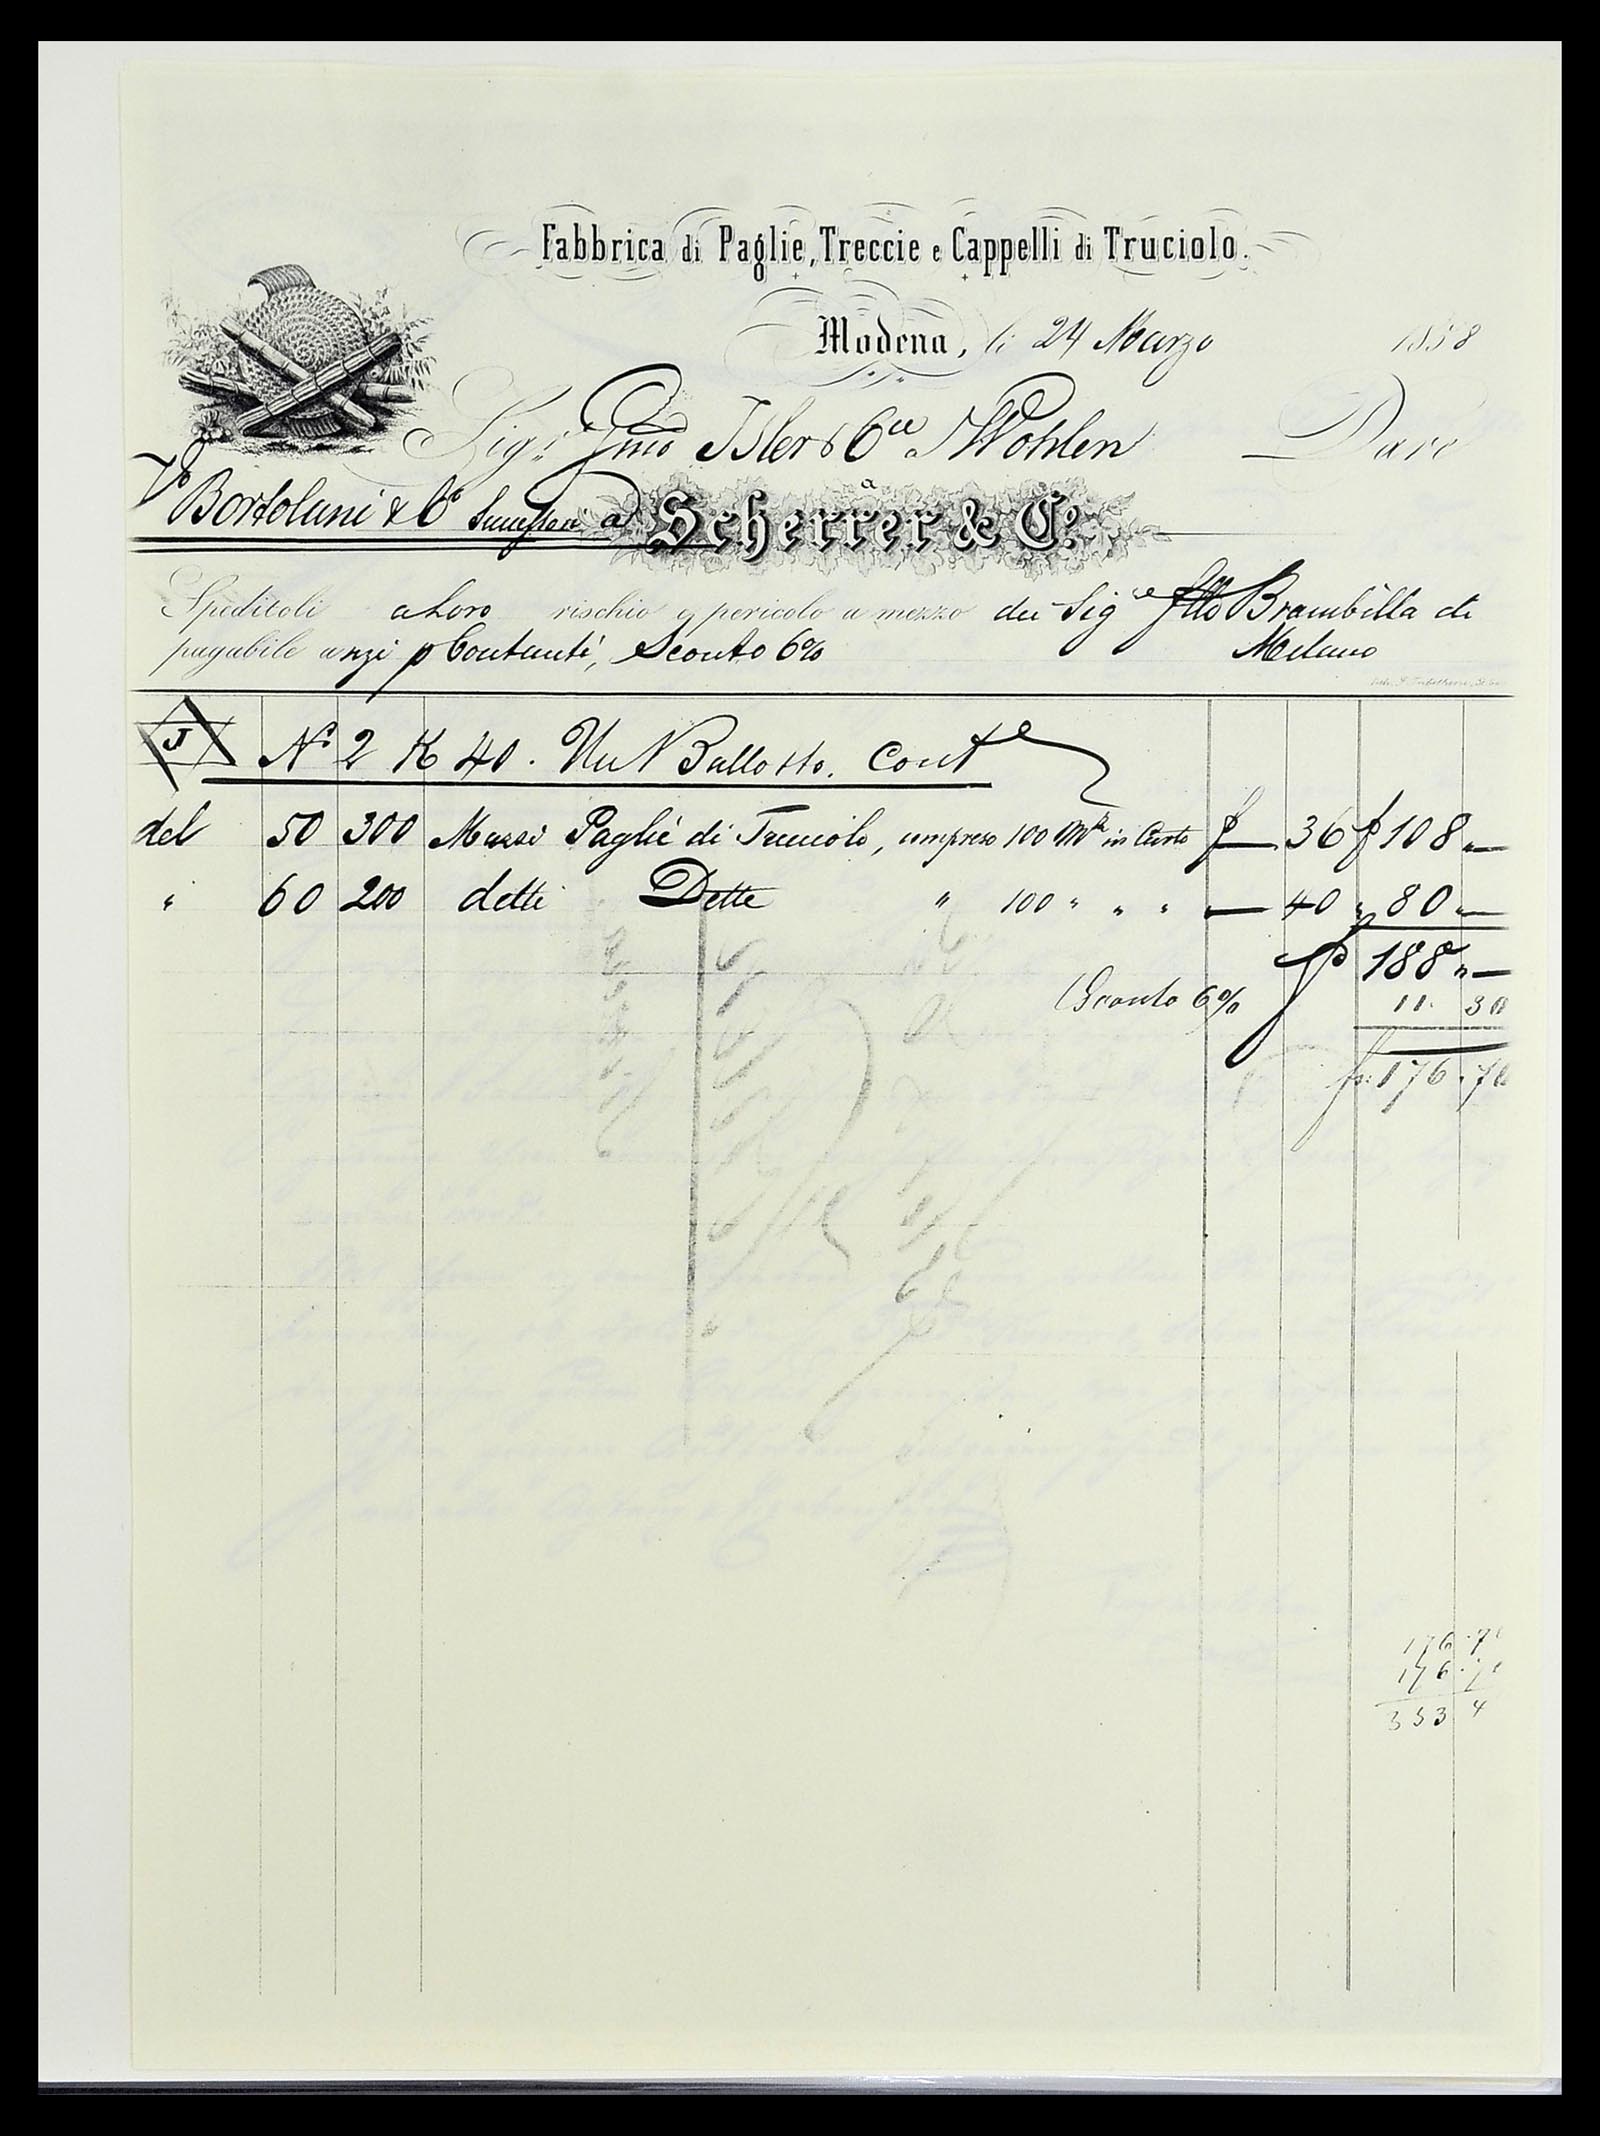 Fabbrica di Paglie, Treccie e Cappelli di Truciolo.
Modena, li 24 Marzo 1858
Sigri Gmo Isler & Cie a Wohlen Dare
a
Bortolani & Co Successori a Scherrer & Co.
Speditoli a Loro rischio e pericolo a mezzo dei Sigri flli Brambilla di
pagabile anzi p Contanti, Sconto 6% Milano
J No 2 K 40. Un Ballotto. Conte
del 50 300 Mazzi Paglie di Truciolo, compreso 100 Mzi in Certo f — 36 f 108 „ —
" 60 200 detti Dette " 100 " " " — 40 " 80 „ —
f 188 „ —
Sconto 6% 11. 30
fr. 176. 70
176. 70
176. 70
353 4